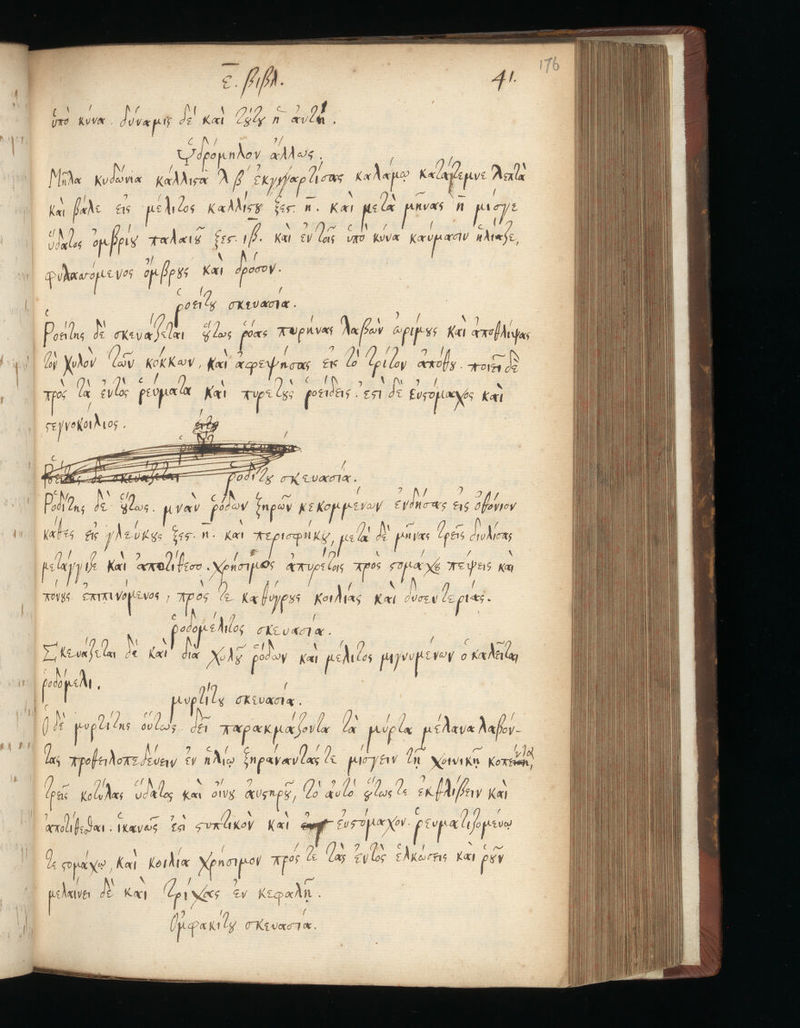 ε. βιβλ. 41. 176
ὑπὸ κύνα. δύναμις δὲ καὶ τούτου ἡ αὐτή.
Ὑδρόμηλον ἄλλως.
Μῆλα κυδώνια κάλλιστα λ β ἐκγιγαρτίσας καλάμῳ κατάτεμνε λεπτὰ
καὶ βάλε εἰς μέλιτος καλλίστου ξες. η. καὶ μετὰ μῆνας η μίσγε
ὕδατος ὀμβρίου παλαιοῦ ξες. ιβ. καὶ ἐν τοῖς ὑπὸ κύνα καύμασιν ἡλίαζε,
φυλασσόμενος ὄμβρους καὶ δρόσον.
ῥοΐτου σκευασία.
Ῥοείτης δὲ σκευάζεται οὕτως ῥόας πυρήνας λαβὼν ὡρίμους καὶ ἀποθλίψας
τὸν χυλὸν τῶν κόκκων, καὶ ἀφεψήσας εἰς τὸ τρίτον ἀπόθου. ποιεῖ δὲ
πρὸς τὰ ἐντὸς ῥεύματα καὶ πυρετοὺς ῥοείδεις. ἐστὶ δὲ εὐστόμαχος καὶ
στεγνοκοίλιος.
ῥοδίτου σκευασία.
Ῥοδίτης δὲ οὕτως. μνᾶν ῥόδων ξηρῶν κεκομμένων ἐνδήσας εἰς ὀθόνιον
κάθες εἰς γλεύκους ξες. η. καὶ περισφήκου, μετὰ δὲ μῆνας τρεῖς διυλίσας
μετάγγιζε καὶ ἀποτίθεσο. χρήσιμος ἀπυρέτοις πρὸς στομάχου πέψεις καὶ
πόνους ἐπιπινόμενος, πρός τε καθύγρους κοιλίας καὶ δυσεντερίας.
ῥοδομέλιτος σκευασία.
Σκευάζεται δὲ καὶ διὰ χυλοῦ ῥόδων καὶ μέλιτος μιγνυμένων ὃ καλεῖται
ῥοδόμελι.
μυρτίτου σκευασία.
Ὁ δὲ μυρτίτης οὕτως. δεῖ παρακμάζοντα τὰ μύρτα μέλανα λαβόν-
τας προθειλοπεδεύειν ἐν ἡλίῳ ξηράναντάς τε μίσγειν τῇ χοινίκῃ κοπέντος,
τρεῖς κοτύλας ὕδατος καὶ οἴνου αὐστηροῦ, τὸ αὐτὸ οὕτως τε ἐκθλίβειν καὶ
ἀποτίθεσθαι. ἱκανῶς ἐστὶ στυπτικὸν καὶ εὐστόμαχον. ῥευματιζομένῳ
τε στομάχῳ, καὶ κοιλίᾳ χρήσιμον πρός τε τὰς ἐντὸς ἑλκώσεις καὶ ῥοῦν
μελαίνει δὲ καὶ τρίχας ἐν κεφαλῇ.
Ὀμφακίτου σκευασία.